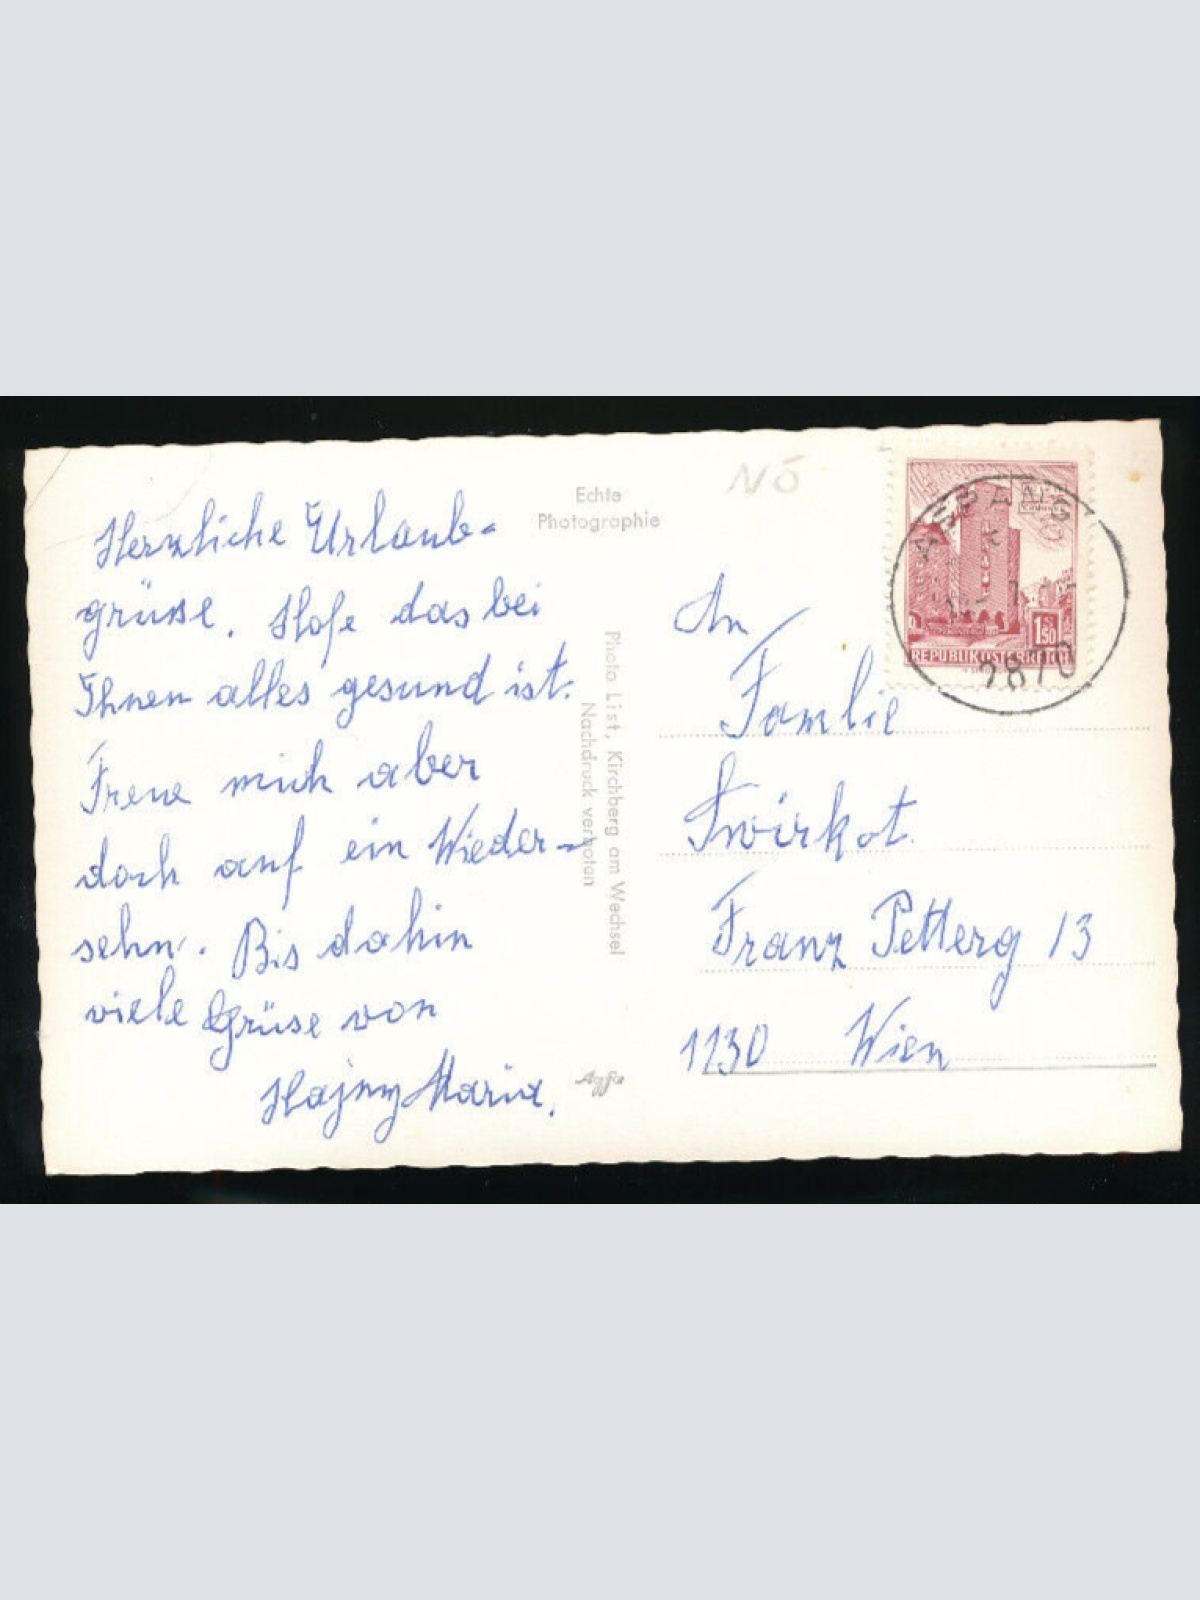 Herzliche Urlaub-
grüsse. Hofe das bei
Ihnen alles gesund ist.
Freue mich aber
doch auf ein Wieder-
sehn. Bis dahin
viele Grüse von
Hajny Maria.
Echte
Photographie
Photo List, Kirchberg am Wechsel
Nachdruck verboten
Agfa
NÖ
ASPANG
2870
1.50
REPUBLIK ÖSTERREICH
An
Familie
Swirkot.
Franz Petterg 13
1130 Wien